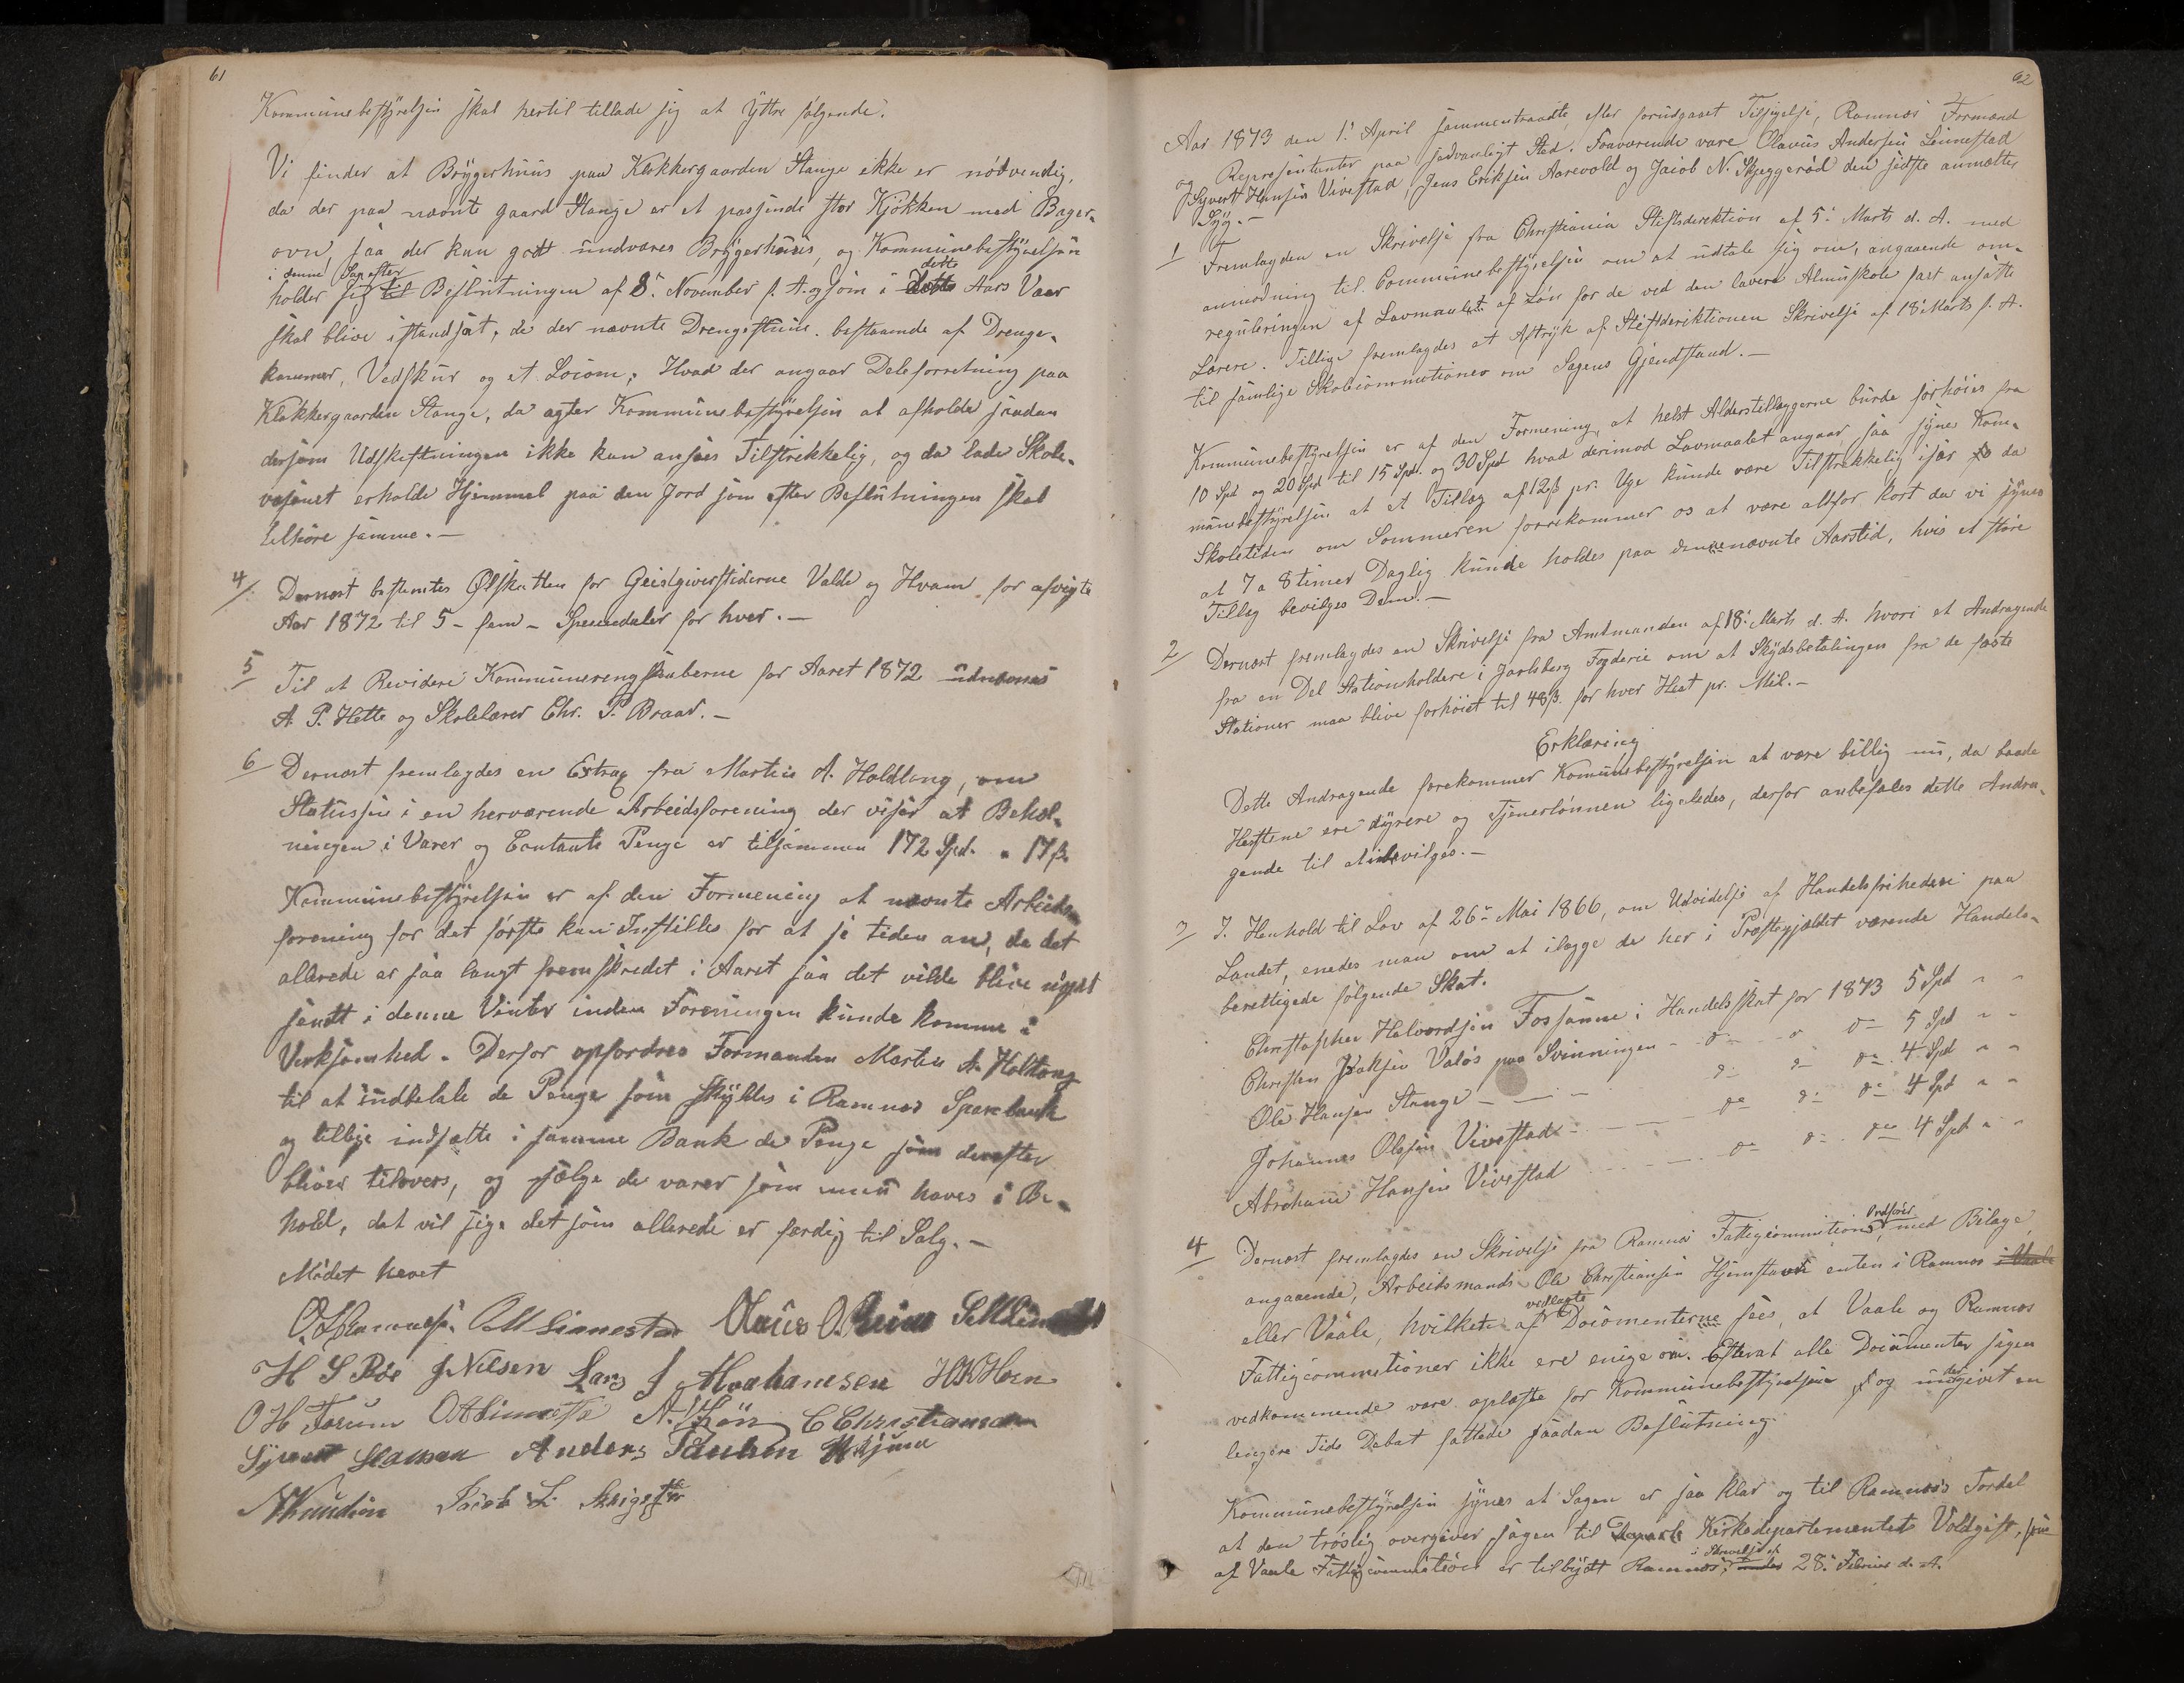 61
Kommunebestyrelsen skal hertil tillade sig at yttre følgende.
Vi finder at Bryggerhuus paa Klokkergaarden Stange ikke er nødvendig,
da der paa nævnte gaard Stange er et passende stor Kjøkken med Bager-
ovn, saa der kan godt undværes Bryggerhuus, og Kommunebestyrelsen
i denne Sag efter dette
holder sig til Beslutningen af 8de November f. A. og som i dette Aars Vaar
skal blive istandsat, de der nævnte Drengestue bestaaende af Drenge-
kammer, Vedskur og et Locom; Hvad der angaar Deleforretning paa
Klokkergaarden Stange, da agter Kommunebestyrelsen at afholde saadan
dersom Udskiftningen ikke kan ansees Tilstrekkelig, og da lade Skole-
vesenet erholde Hjemmel paa den Jord som efter Beslutningen skal
tilhøre samme.-
4/ Dernæst bestemtes Ølskatten for Gjestgiverstederne Valde og Hvam for afvigte
Aar 1872 til 5 - fem - Speciedaler for hver.-
5 Til at Revidere Kommuneregnskaberne for Aaret 1872 udnævnes
A. P. Hette og Skolelærer Chr. P. Braar.-
6 Dernæst fremlagdes en Extrag fra Martin A. Holdtung, om
Statussen i en herværende Arbeidsforening der viser at Behol-
ningen i Varer og Contante Penge er tilsammen 172 Spd. " 17 ß
Kommunebestyrelsen er af den Formening at nævnte Arbeids-
forening for det første kan Indstilles for at se tiden an, da det
allerede er saa langt fremskredet i Aaret saa det vilde blive noget
sendt i denne Vinter inden Foreningen kunde komme i
Virksomhed. Derfor opfordres Formanden Martin A. Holtung
til at indbetale de Penge som skyldes i Ramnes Sparebank
og tillige indsætte i samme Bank de Penge som derefter
bliver tilovers, og sælge de varer som nu haves i Be-
hold, det vil sige det som allerede er færdig til Salg.-
Mødet hævet
Olaus O.
H S Röe J Nilsen Lars J Abrahamsen H K Horn
O H Forum C Christiansen
Syvert Hansen Anders Paulsen
N Knudsen Jacob
62
Aar 1873 den 1ste April sammentraadte, efter forudgaaet Tilsigelse, Ramnes Formænd
og Repræsentanter paa sedvanligt Sted. Fraværende vare Olavus Andersen Linnestad
Syvert Hansen Vivestad, Jens Eriksen Aarevold og Jacob N. Skjeggerød den sidste anmeldte
Syg.-
1 Fremlagdes en Skrivelse fra Christiania Stiftsdirektion af 5te Marts d. A. med
anmodning til Communebestyrelsen om at udtale sig om, angaaende om-
reguleringen af Lavmaalet af Løn for de ved den lavere Almuskole fast ansatte
Lærere. Tillige fremlagdes et Aftryk af Stiftderiktionen Skrivelse af 18de Marts f. A.
til samlige Skolecommitioner om Sagens Gjendstand.-
Kommunebestyrelsen er af den Formening, at helst Alderstillæggerne burde forhøies fra
10 Spd og 20 Spd til 15 Spd. og 30 Spd hvad derimod Lavmaalet angaar, saa synes Kom-
munebestyrelsen at et Tillæg af 12 ß pr. Uge kunde være Tilstrekkelig især da
Skoletiden om Sommeren forrekommer os at være altfor kort da vi synes
at 7 a 8 timer Daglig kunde holdes paa dennenævnte Aarstid, hvis et større
Tillæg bevilges Dem.-
2 Dernæst fremlagdes en Skrivelse fra Amtmanden af 18de Marts d. A. hvori et Andragende
fra en Del Stationsholdere i Jarlsberg Fogderie om at Skydsbetalingen fra de faste
Stationer maa blive forhøiet til 48 ß. for hver Hest pr. Mil.-
Erklæring
Dette Andragende forekommer Komunebestyrelsen at være billig nu, da baade
Hestene ere dyrere og Tjenerlønnen ligeledes, derfor anbefales dette Andra-
gende til at bevilges.-
3 I. Henhold til Lov af 26de Mai 1866, om Udvidelse af Handelsfriheden paa
Landet, enedes man om at ilægge de her i Præstegjældet værende Handels-
berettigede følgende Skat.
Christopher Halvordsen Fossanne i Handelsskat for 1873 5 Spd " "
Christen Isaksen Valøs paa Svinningen - do - do do 5 Spd " "
Ole Hansen Stange - - - do do do 4 Spd " "
Johannes Olesen Vivestad - - - do do do 4 Spd " "
Abraham Hansen Vivestad - - - do do do 4 Spd " "
4 Dernæst fremlagdes en Skrivelse fra Ramnes Fattigcommitions Ordfører, med Bilage,
angaaende, Arbeidsmands Ole Christiansen Hjemstavn enten i Ramnes i Vaale
eller Vaale, hvilket af vedlagte Documenterne sees, at Vaale og Ramnes
Fattigcommitioner ikke ere enige om. Efterat alle Documenter sagen
vedkommende vare oplæste for Kommunebestyrelsen og undgivet en
længere Tids Debat fattede saadan Beslutning.
Kommunebestyrelsen synes at Sagen er saa klar og til Ramnes's Fordel
at den trøstig overgiver sagen til Kirkedepartementets Voldgift, som
af Vaale Fattigcommition er tilbydt Ramnes, i Skrivelse af 28de Februar d. A.